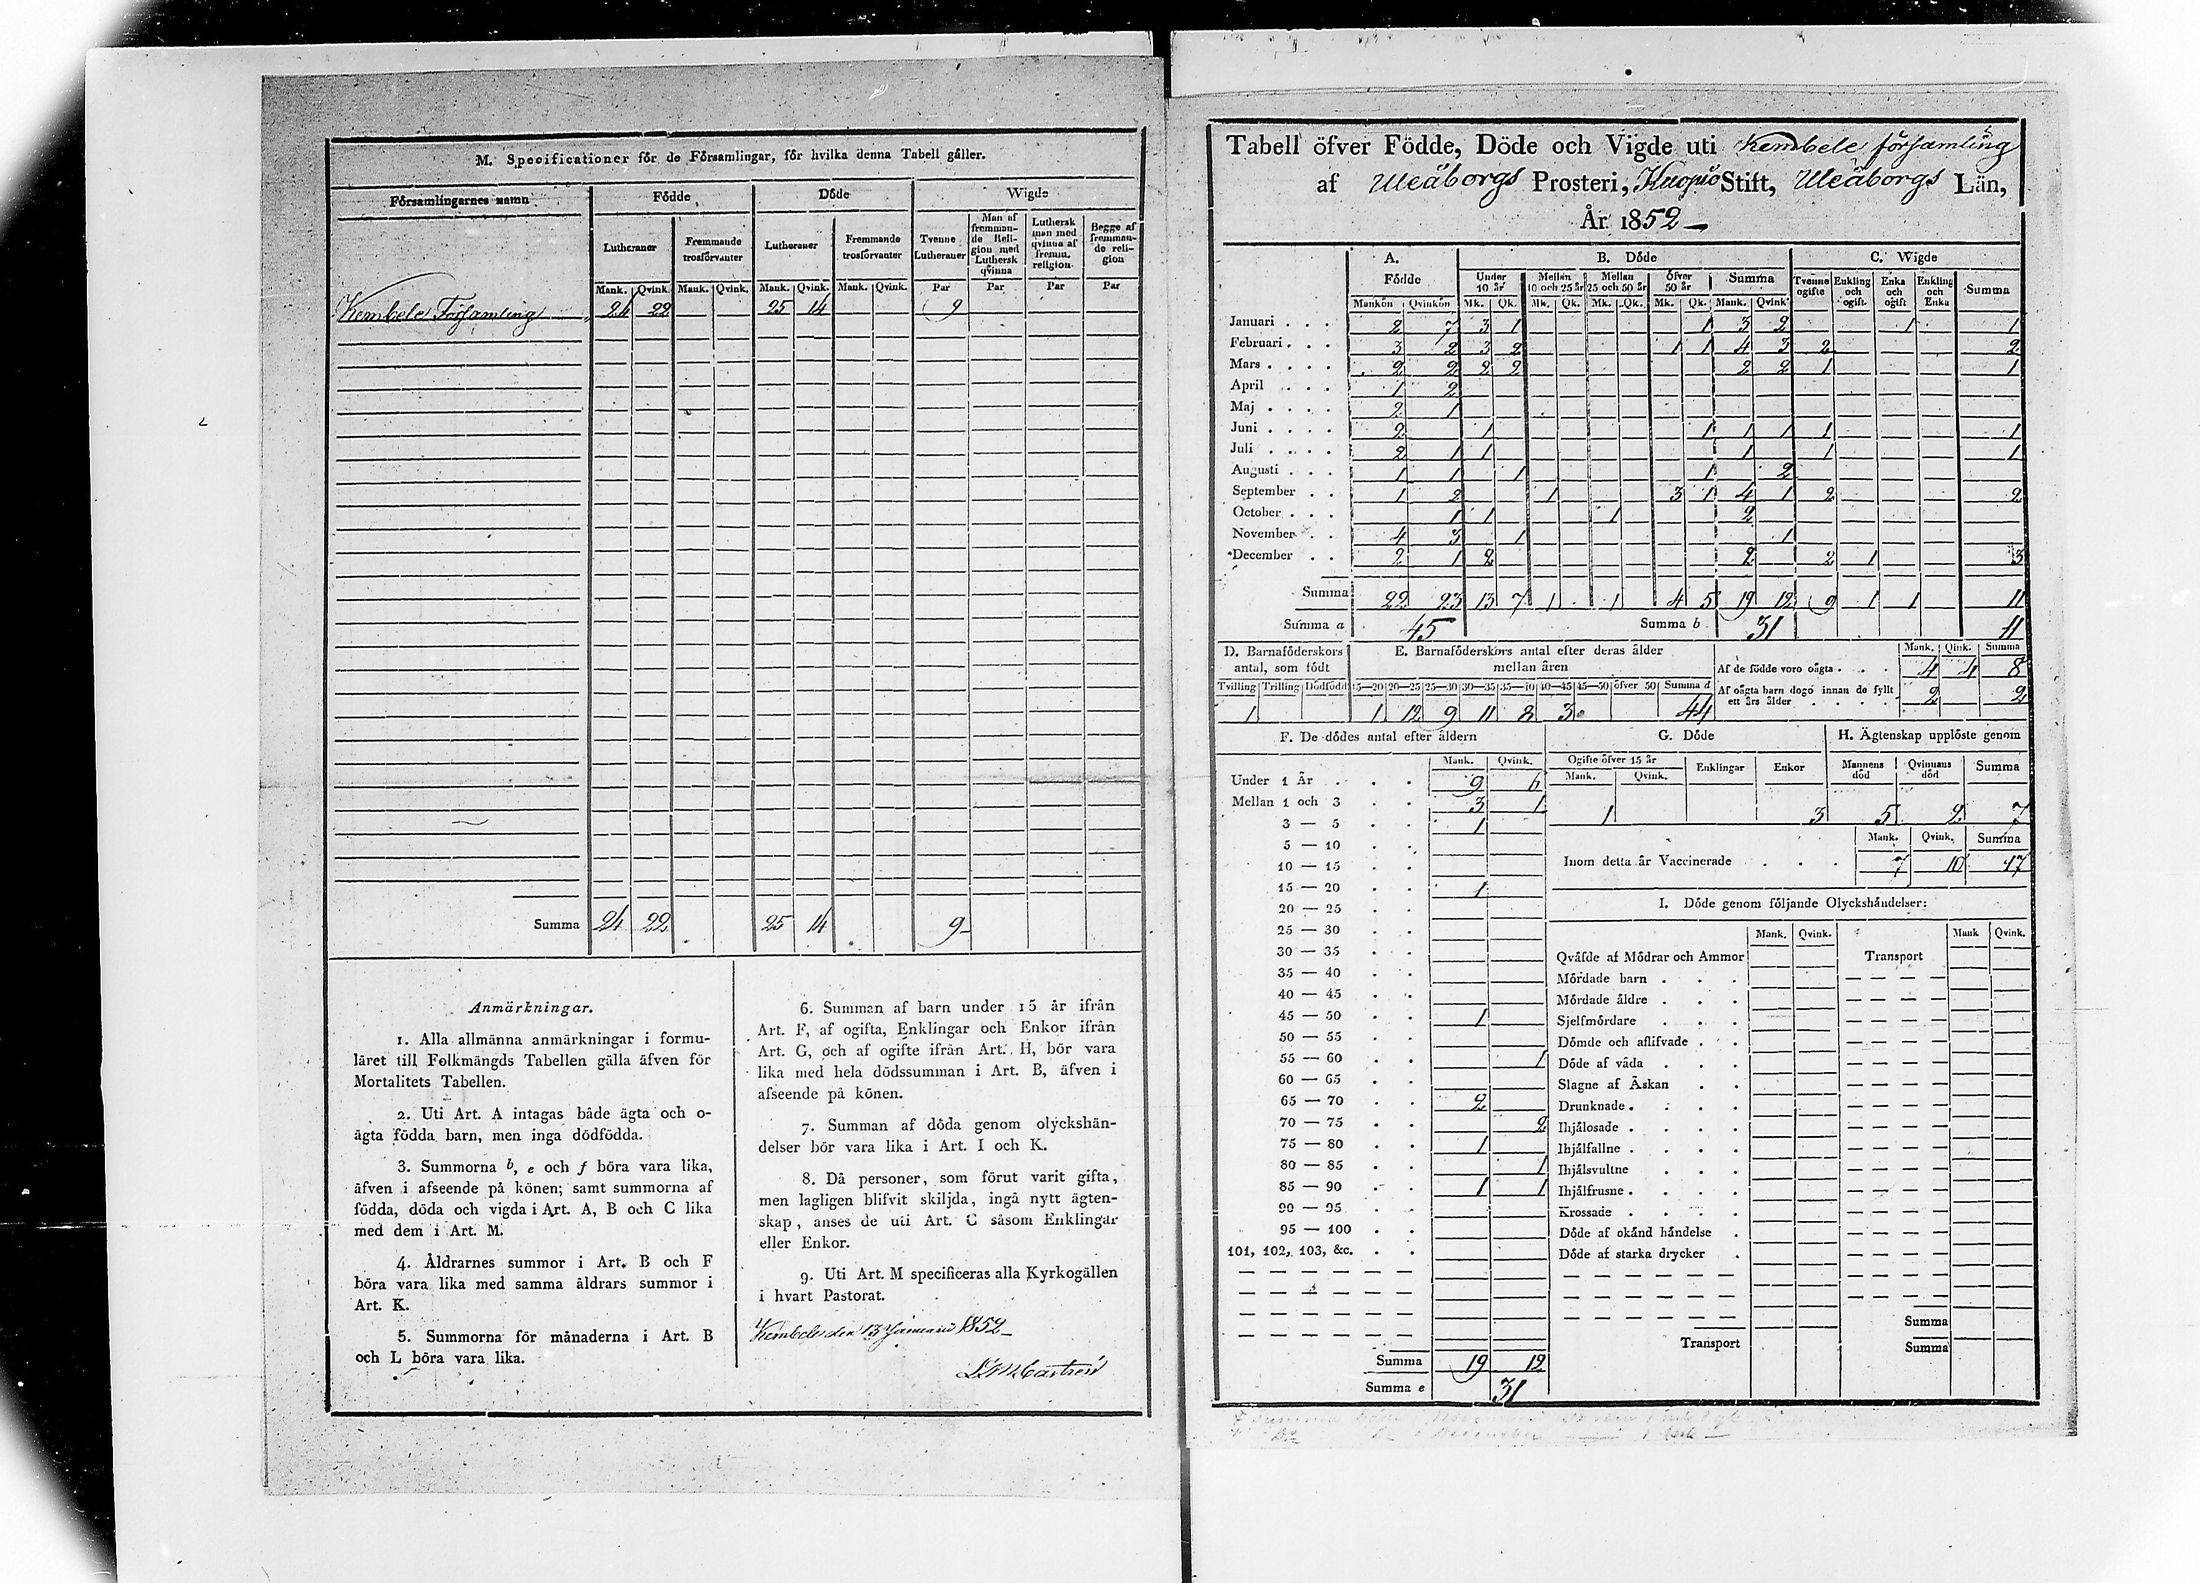 M. Specificationer för de Församlingar, för hvilka denna Tabell gäller.
Församlingarnes namn Födde Döde Wigde
Lutheraner Fremmande trosförvanter Lutheraner Fremmande trosförvanter Tvenne Lutheraner Man af fremmande Religion med Luthersk qvinna Luthersk man med qvinna af fremm. religion Begge af fremmande religion
Mank. Qvink. Mank. Qvink. Mank. Qvink. Mank. Qvink. Par Par Par Par
Kembele Församling 24 22 25 14 9
Summa 24 22 25 14 9
Anmärkningar.
1. Alla allmänna anmärkningar i formu-
läret till Folkmängds Tabellen gälla äfven för
Mortalitets Tabellen.
2. Uti Art. A intagas både ägta och o-
ägta födda barn, men inga dödfödda.
3. Summorna b, e och f böra vara lika,
äfven i afseende på könen; samt summorna af
födda, döda och vigda i Art. A, B och C lika
med dem i Art. M.
4. Åldrarnes summor i Art. B och F
böra vara lika med samma åldrars summor i
Art. K.
5. Summorna för månaderna i Art. B
och L böra vara lika.
6. Summan af barn under 15 år ifrån
Art. F, af ogifta, Enklingar och Enkor ifrån
Art. G, och af ogifte ifrån Art. H, bör vara
lika med hela dödssumman i Art. B, äfven i
afseende på könen.
7. Summan af döda genom olyckshän-
delser bör vara lika i Art. I och K.
8. Då personer, som förut varit gifta,
men lagligen blifvit skiljda, ingå nytt ägten-
skap, anses de uti Art. C såsom Enklingar
eller Enkor.
9. Uti Art. M specificeras alla Kyrkogällen
i hvart Pastorat.
Kembele den 13 Januari 1852
Castrén
Tabell öfver Födde, Döde och Vigde uti Kembele församling
af Uleåborgs Prosteri, Kuopio Stift, Uleåborgs Län,
År 1852
A. Födde B. Döde C. Wigde
Under 10 år Mellan 10 och 25 år Mellan 25 och 50 år Öfver 50 år Summa Tvenne ogifte Enkling och ogift Enka och ogift Enkling och Enka Summa
Mankön Qvinkön Mk. Qk. Mk. Qk. Mk. Qk. Mk. Qk. Mank. Qvink.
Januari 2 7 3 1 1 3 2 1 1
Februari 3 2 3 2 1 1 4 3 2 2
Mars 2 2 2 2 2 2 1 1
April 1 2
Maj 2 1
Juni 2 1 1 1 1 1 1
Juli 2 1 1 1 1 1
Augusti 1 1 1 1 2
September 1 2 1 3 1 4 1 2 2
October 1 1 1 2
November 4 3 1 1
December 2 1 2 2 2 1 3
Summa 22 23 13 7 1 1 4 5 19 12 9 1 1 11
Summa a 45 Summa b 31 11
D. Barnaföderskors antal, som födt
Tvilling Trilling Dödfödd
1
E. Barnaföderskors antal efter deras ålder mellan åren
15—20 20—25 25—30 30—35 35—40 40—45 45—50 öfver 50 Summa d
1 12 9 11 8 3 44
Mank. Qink. Summa
Af de födde voro oägta 4 4 8
Af oägta barn dogo innan de fyllt ett års ålder 2 2
F. De dödes antal efter åldern
Mank. Qvink.
Under 1 År 9 6
Mellan 1 och 3 3 1
3 — 5 1
5 — 10
10 — 15
15 — 20 1
20 — 25
25 — 30
30 — 35
35 — 40
40 — 45
45 — 50 1
50 — 55
55 — 60 1
60 — 65
65 — 70 2
70 — 75 2
75 — 80 1
80 — 85 1
85 — 90 1 1
90 — 95
95 — 100
101, 102, 103, &c.
Summa 19 12
Summa e 31
G. Döde
Ogifte öfver 15 år Enklingar Enkor
Mank. Qvink.
1 3
H. Ägtenskap upplöste genom
Mannens död Qvinnans död Summa
5 2 7
Mank. Qvink. Summa
Inom detta år Vaccinerade 7 10 17
I. Döde genom följande Olyckshändelser:
Mank. Qvink. Mank Qvink.
Qväfde af Mödrar och Ammor Transport
Mördade barn
Mördade äldre
Sjelfmördare
Dömde och aflifvade
Döde af våda
Slagne af Åskan
Drunknade
Ihjälosade
Ihjälfallne
Ihjälsvultne
Ihjälfrusne
Krossade
Döde af okänd händelse
Döde af starka drycker
Summa
Transport Summa